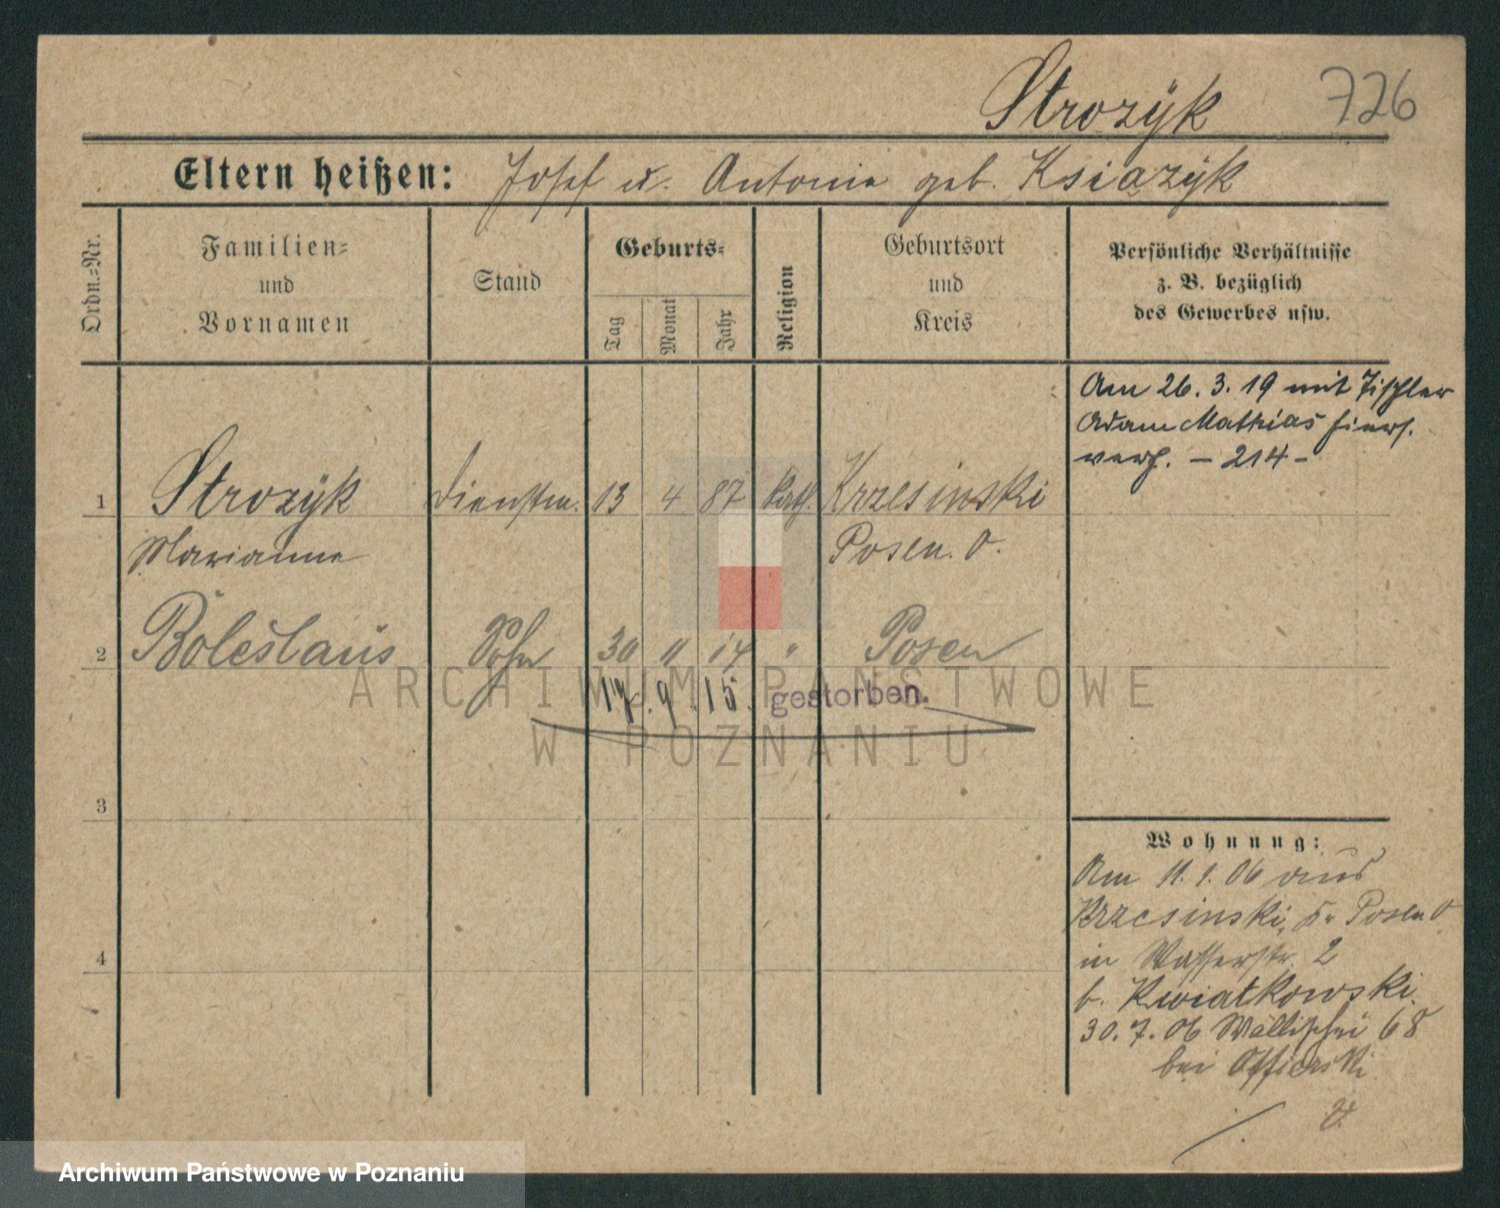 Strozÿk 726
Eltern heißen: Josef u. Antonie geb. Ksiazÿk
Ordn.=Nr.
Familien=
und
Vornamen
Stand
Geburts=
Tag
Monat
Jahr
Religion
Geburtsort
und
Kreis
Persönliche Verhältnisse
z. B. bezüglich
des Gewerbes usw.
Am 26. 3. 19 mit Tischler
Adam Mathias hiers.
verh. – 214 –
1 Strozÿk Dienstm. 13 4 87 kath. Krzesinski
Marianne Posen. O.
2 Boleslaus Sohn 30 11 14 " Posen
17. 9. 15. gestorben.
3
4
Wohnung:
Am 11. 1. 06 aus
Krzesinski, Kr Posen O
in Wasserstr. 2
b. Kwiatkowski
30. 7. 06 Wallischei 68
bei
ARCHIWUM PAŃSTWOWE
W POZNANIU
Archiwum Państwowe w Poznaniu